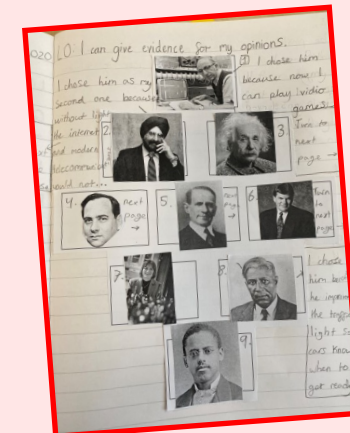 020
LO: I can give evidence for my opinions.
I chose him as my
second one because
without light
the internet
and modern
telecommunicat
would not...
1 I chose him
because now I
can play vidio
games.
2.
3.
Turn to
next
page
→
4.
next
page
→
5.
next
page
→
6.
Turn
to
next
page
→
7.
8.
I chose
him but
he impro
the traff
light so
cars know
when to
get read
9.